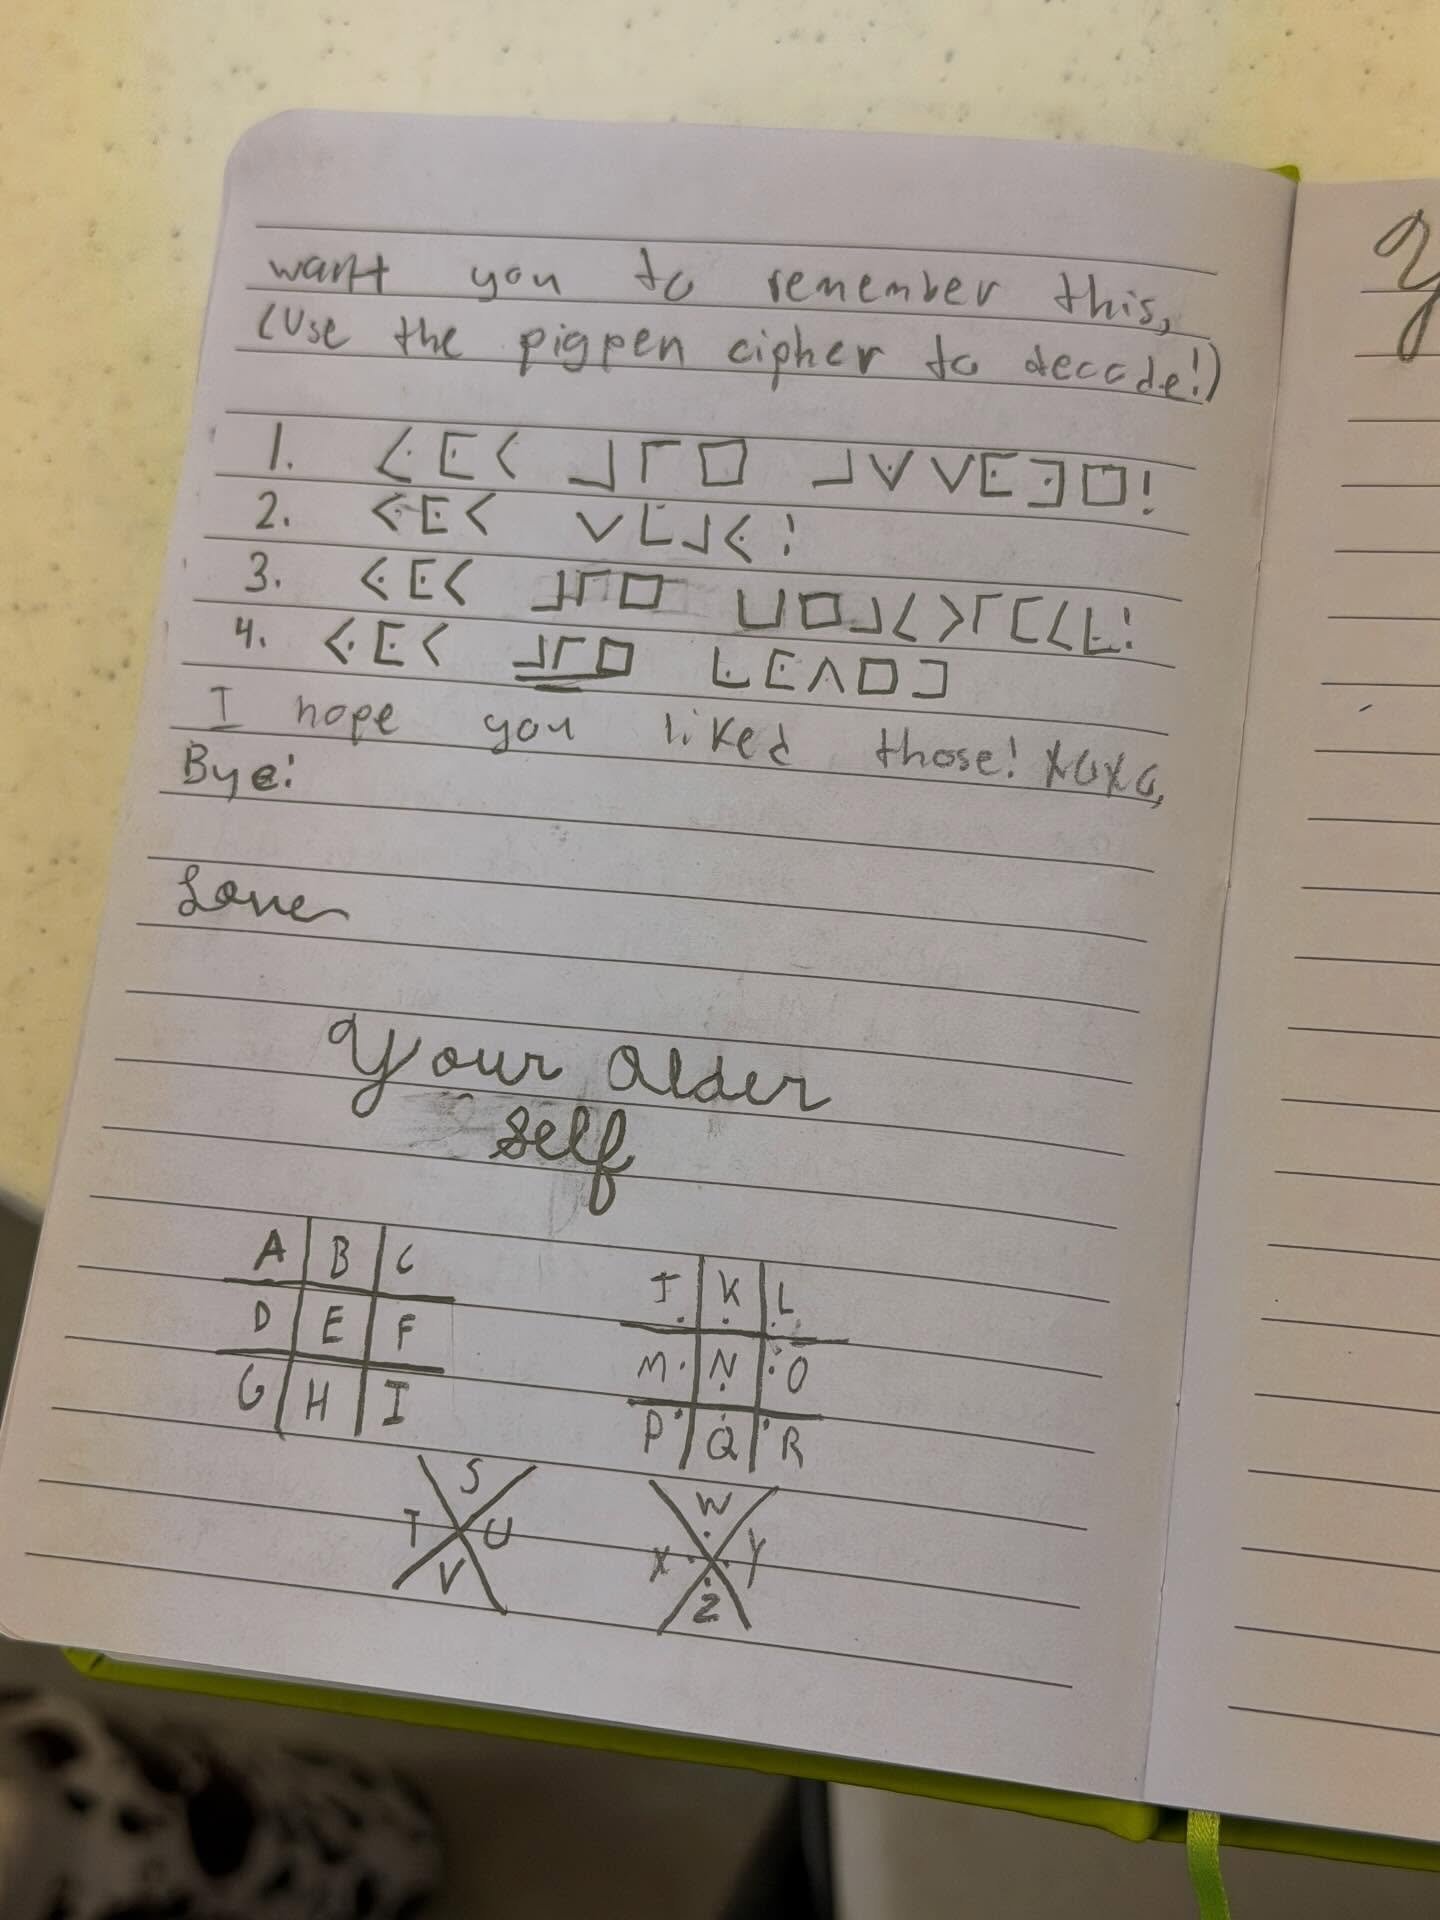 want you to remember this,
(Use the pigpen cipher to decode!)
1. <·⊏·< ⅃Γ□ ⅃V·V⊏·⊐·□!
2. <·⊏·< VL·⅃<·!
3. <·⊏·< ⅃Γ□ ⊔□⅃<>Γ⊏<L·!
4. <·⊏·< ⅃Γ□ L·⊏·Λ□⊐
I hope you liked those! XOXO,
Bye!
Love
Your Older
self
A B C
D E F
G H I
J K L
M N O
P Q R
S
T U
V
W
X Y
Z